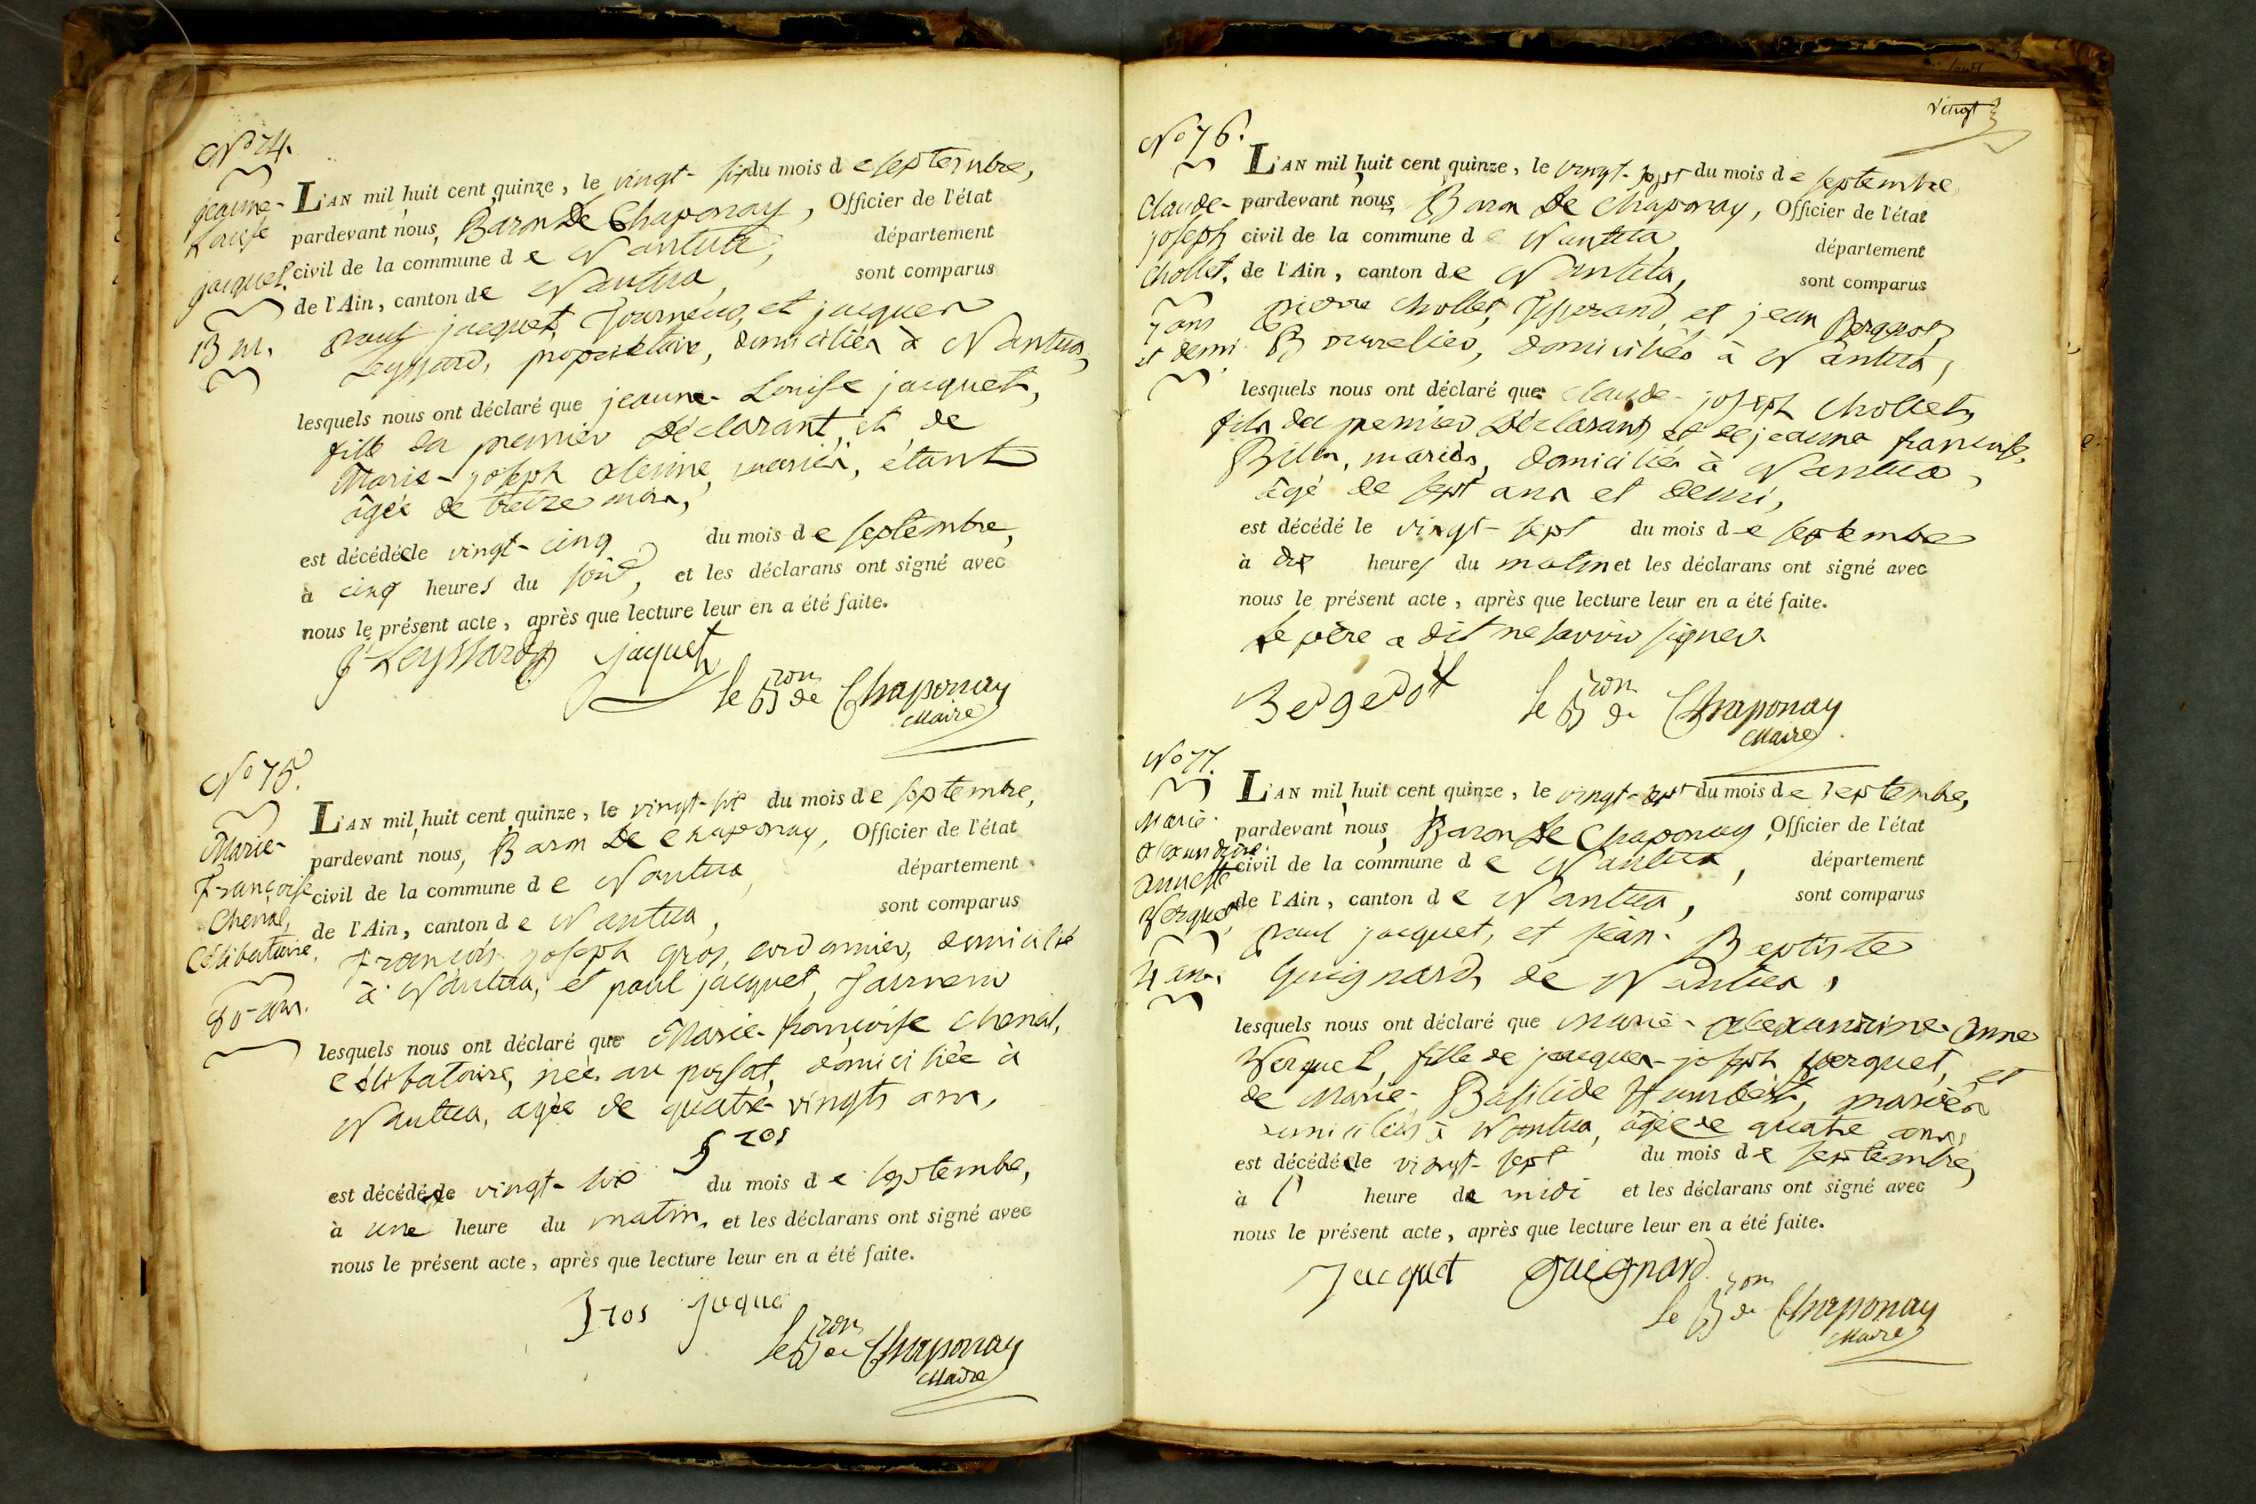 N° 74.
jeanne-
Louise
jacquet.
13 m.
L'AN mil huit cent quinze, le vingt-six du mois de septembre,
pardevant nous, Baron De Chaponay, Officier de l'état
civil de la commune de Nantua, département
de l'Ain, canton de Nantua, sont comparus
paul jacquet, et jacques
Leyssard, propriétaire, domiciliés à Nantua,
lesquels nous ont déclaré que jeanne-Louise jacquet,
fille du premier Déclarant, et de
Marie-joseph mariés, étant
âgée de treize mois,
est décédée le vingt-cinq du mois de septembre,
à cinq heures du soir, et les déclarans ont signé avec
nous le présent acte, après que lecture leur en a été faite.
J Leyssard jaquet
le Bron de Chaponay
Maire
N° 75.
Marie-
Françoise
Chenal,
Célibataire.
80 ans.
L'AN mil huit cent quinze, le vingt-six du mois de septembre,
pardevant nous, Baron De Chaponay, Officier de l'état
civil de la commune de Nantua, département
de l'Ain, canton de Nantua, sont comparus
François joseph gros, cordonnier, domicilié
à Nantua, et paul jacquet,
lesquels nous ont déclaré que Marie-françoise Chenal,
Célibataire, née au poisat, domiciliée à
Nantua, agée de quatre-vingts ans,
gros
est décédée le vingt-six du mois de septembre,
à une heure du matin, et les déclarans ont signé avec
nous le présent acte, après que lecture leur en a été faite.
gros jaque
le Bron de Chaponay
Maire
vingt
N° 76.
Claude-
joseph
Chollet.
7 ans
et demi
L'AN mil huit cent quinze, le vingt-sept du mois de septembre,
pardevant nous, Baron De Chaponay, Officier de l'état
civil de la commune de Nantua, département
de l'Ain, canton de Nantua, sont comparus
pierre Chollet, et jean
Bourrelier, domiciliés à Nantua,
lesquels nous ont déclaré que Claude-joseph Chollet,
fils du premier Déclarant, et de jeanne françoise
mariés, domiciliés à Nantua,
âgé de sept ans et demi,
est décédé le vingt-sept du mois de septembre
à dix heures du matin et les déclarans ont signé avec
nous le présent acte, après que lecture leur en a été faite.
Le père a dit ne savoir signer.
Bergerot
le Bron de Chaponay
Maire
N° 77.
Marie-
alexandrine-
annette
Verguet,
4 ans.
L'AN mil huit cent quinze, le vingt-sept du mois de septembre,
pardevant nous, Baron De Chaponay, Officier de l'état
civil de la commune de Nantua, département
de l'Ain, canton de Nantua, sont comparus
paul jacquet, et jean-Baptiste
Guignard, de Nantua,
lesquels nous ont déclaré que marie-alexandrine-anne
Verguet, fille de jacques-joseph verguet, et
de Marie-Basilide Humbert, mariés
domiciliés à Nantua, âgée de quatre ans,
est décédée le vingt-sept du mois de septembre,
à l' heure de midi et les déclarans ont signé avec
nous le présent acte, après que lecture leur en a été faite.
Jacquet guignard
le Bron de Chaponay
Maire